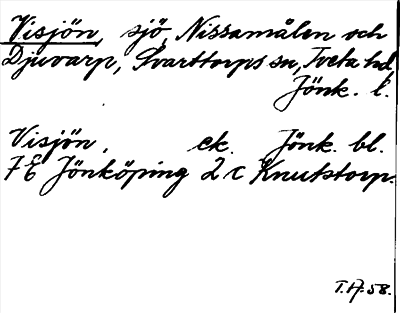 Visjön, sjö, Nissamålen och
Djuvarp, Svarttorps sn, Tveta hd,
Jönk. l.
Visjön, ek. Jönk. bl.
7E Jönköping 2 c Knutstorp.
T.A. 58.